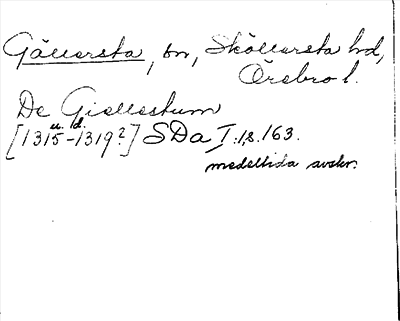 Gällersta, sn, Sköllersta hd,
Örebro l.
De Giællestum
u. d.
[1315-1319?] SDa I:1,s.163.
medeltida avskr.